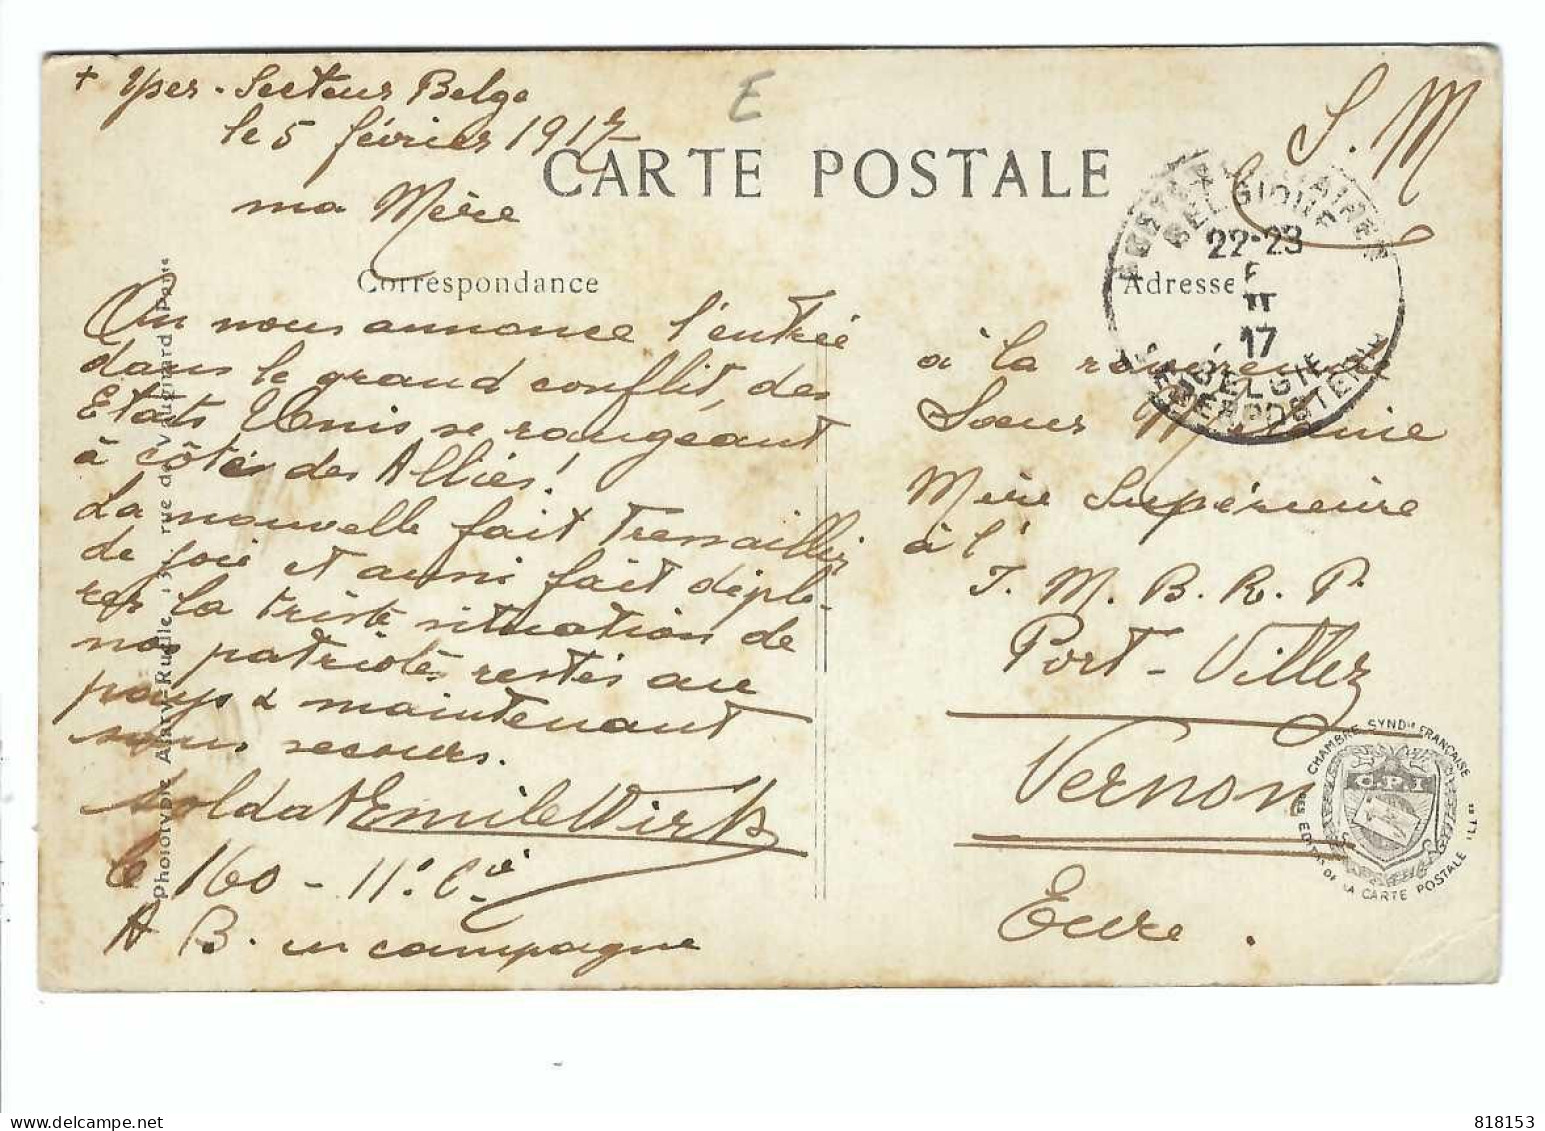 + Yper - Secteur Belge
le 5 février 1917
E
S. M
CARTE POSTALE
ma Mère
Correspondance
On nous annonce l'entrée
dans le grand conflit, des
Etats Unis se rangeant
à côté des Alliés !
La nouvelle fait tressaillir
de joie et aussi fait déplo-
rer la triste situation de
nos patriotes restés au
pays & maintenant
sans secours.
soldat Emile Wirk
C 160 - 11° Cie
A B. en campagne
Phototypie Alary-Ruelle, rue de Vaugirard Paris
Adresse
à la révérende
Soeur
Mère Supérieure
à l'
I. M. B. R. P.
Port-Villez
Vernon
Eure.
POSTES MILITAIRES
BELGIQUE
22-23
II
17
BELGIE
LEGERPOSTERIJ
CHAMBRE SYNDle FRANÇAISE
DES EDITrs DE LA CARTE POSTALE ILLrée
C.P.I
delcampe.net
818153